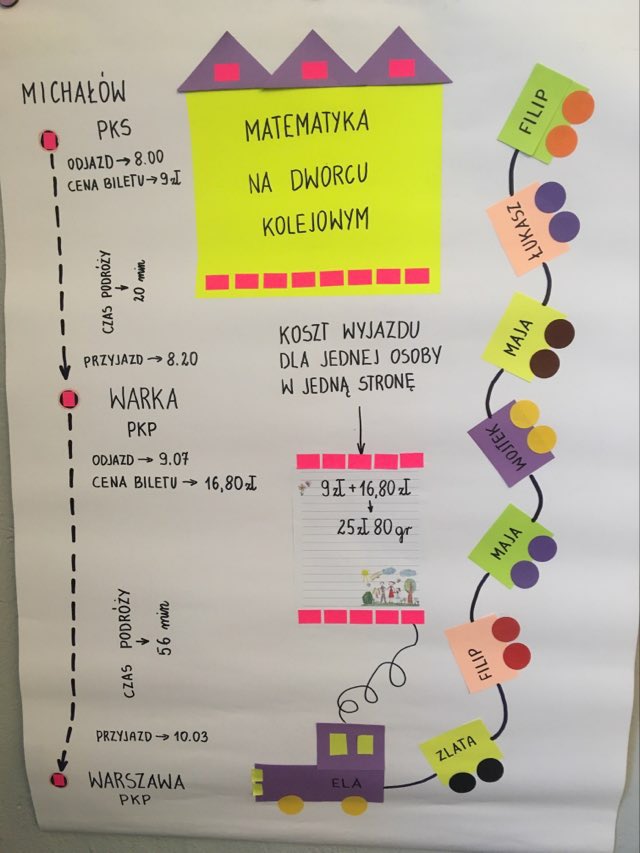 MICHAŁÓW
PKS
ODJAZD → 8.00
CENA BILETU → 9 zł
CZAS PODRÓŻY
↓
20 min
PRZYJAZD → 8.20
WARKA
PKP
ODJAZD → 9.07
CENA BILETU → 16,80 zł
CZAS PODRÓŻY
↓
56 min
PRZYJAZD → 10.03
WARSZAWA
PKP
MATEMATYKA
NA DWORCU
KOLEJOWYM
KOSZT WYJAZDU
DLA JEDNEJ OSOBY
W JEDNĄ STRONĘ
9 zł + 16,80 zł
↓
25 zł 80 gr
FILIP
ŁUKASZ
MAJA
WOJTEK
MAJA
FILIP
ZLATA
ELA